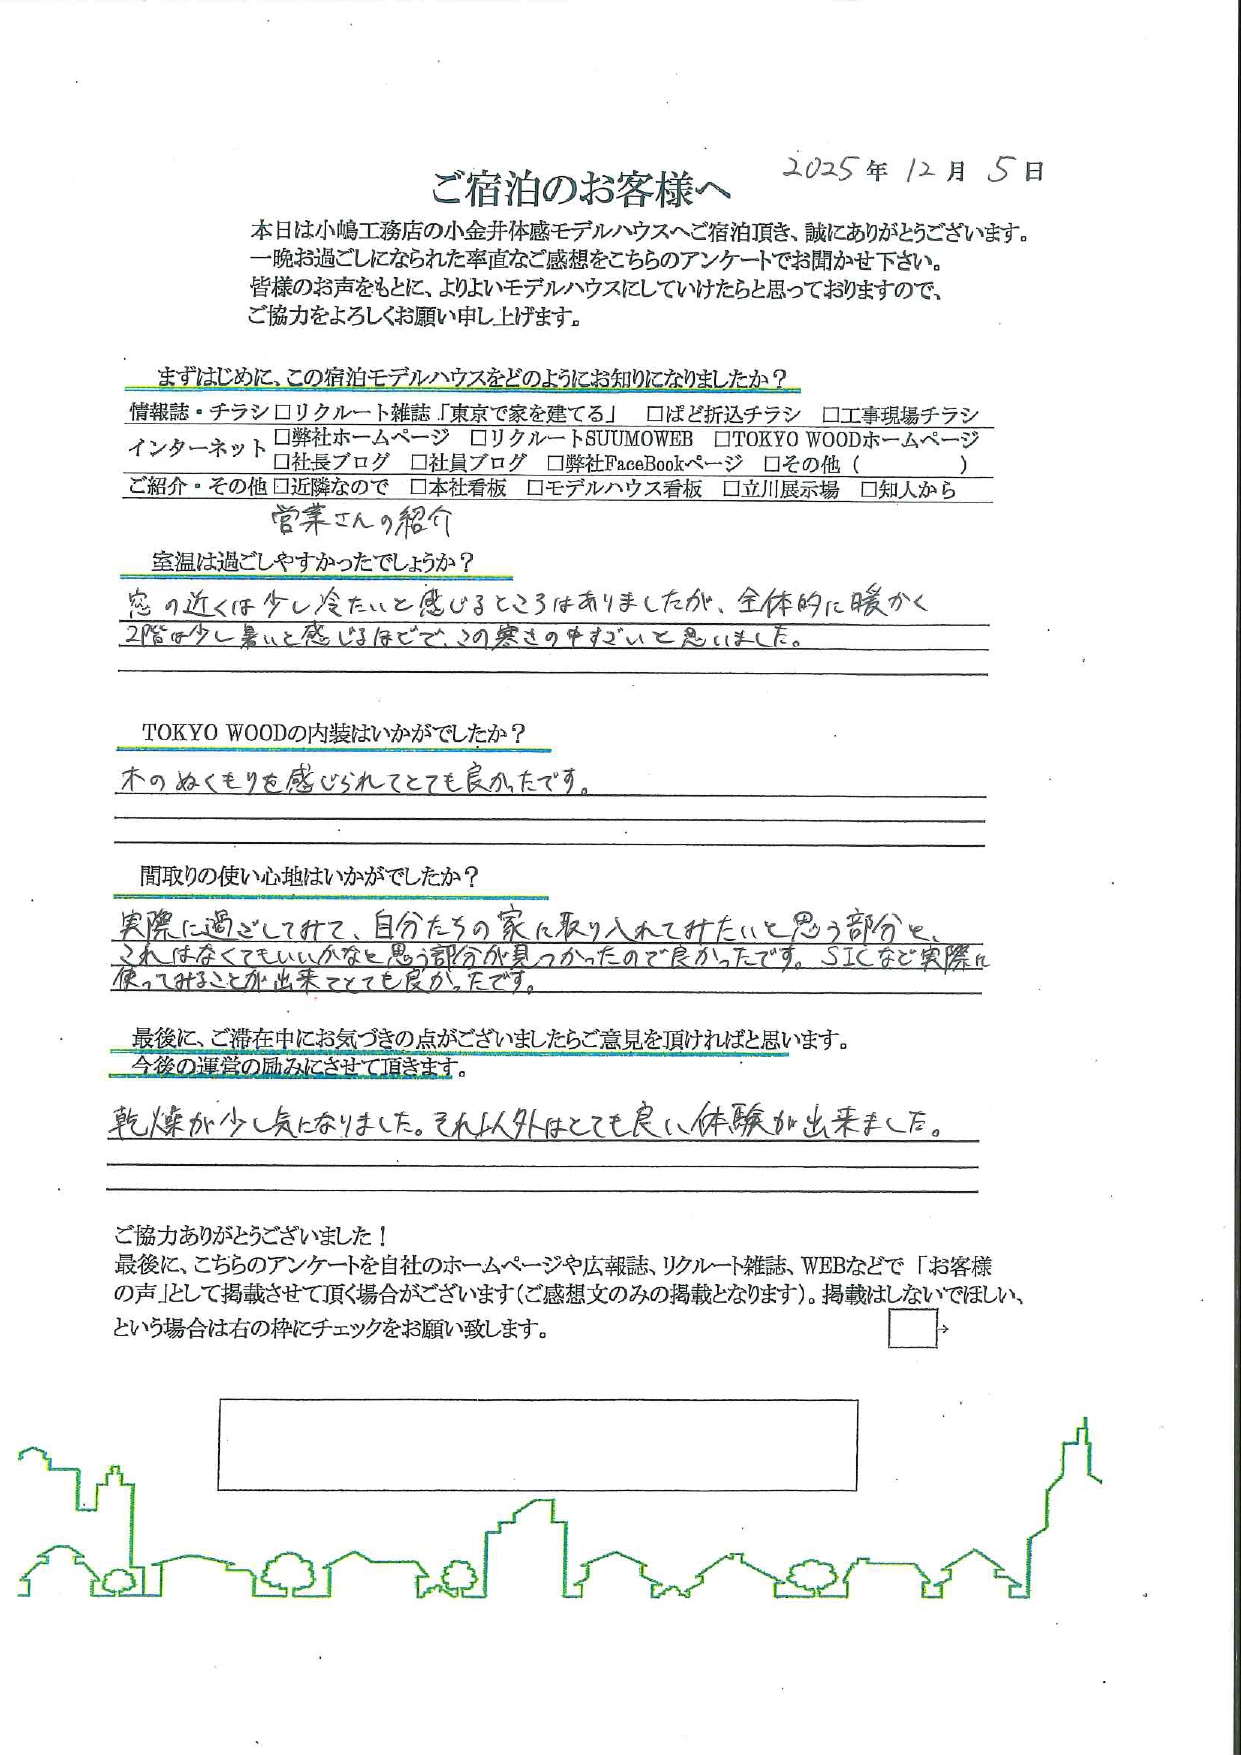 2025年12月5日
ご宿泊のお客様へ
本日は小嶋工務店の小金井体感モデルハウスへご宿泊頂き、誠にありがとうございます。
一晩お過ごしになられた率直なご感想をこちらのアンケートでお聞かせ下さい。
皆様のお声をもとに、よりよいモデルハウスにしていけたらと思っておりますので、
ご協力をよろしくお願い申し上げます。
まずはじめに、この宿泊モデルハウスをどのようにお知りになりましたか？
情報誌・チラシ □リクルート雑誌「東京で家を建てる」 □ぱど折込チラシ □工事現場チラシ
インターネット □弊社ホームページ □リクルートSUUMOWEB □TOKYO WOODホームページ
□社長ブログ □社員ブログ □弊社FaceBookページ □その他（ ）
ご紹介・その他 □近隣なので □本社看板 □モデルハウス看板 □立川展示場 □知人から
営業さんの紹介
室温は過ごしやすかったでしょうか？
窓の近くは少し冷たいと感じるところはありましたが、全体的に暖かく
2階は少し暑いと感じるほどで、この寒さの中すごいと思いました。
TOKYO WOODの内装はいかがでしたか？
木のぬくもりを感じられてとても良かったです。
間取りの使い心地はいかがでしたか？
実際に過ごしてみて、自分たちの家に取り入れてみたいと思う部分と、
これはなくてもいいかなと思う部分が見つかったので良かったです。SICなど実際に
使ってみることが出来てとても良かったです。
最後に、ご滞在中にお気づきの点がございましたらご意見を頂ければと思います。
今後の運営の励みにさせて頂きます。
乾燥が少し気になりました。それ以外はとても良い体験が出来ました。
ご協力ありがとうございました！
最後に、こちらのアンケートを自社のホームページや広報誌、リクルート雑誌、WEBなどで「お客様
の声」として掲載させて頂く場合がございます（ご感想文のみの掲載となります）。掲載はしないでほしい、
という場合は右の枠にチェックをお願い致します。